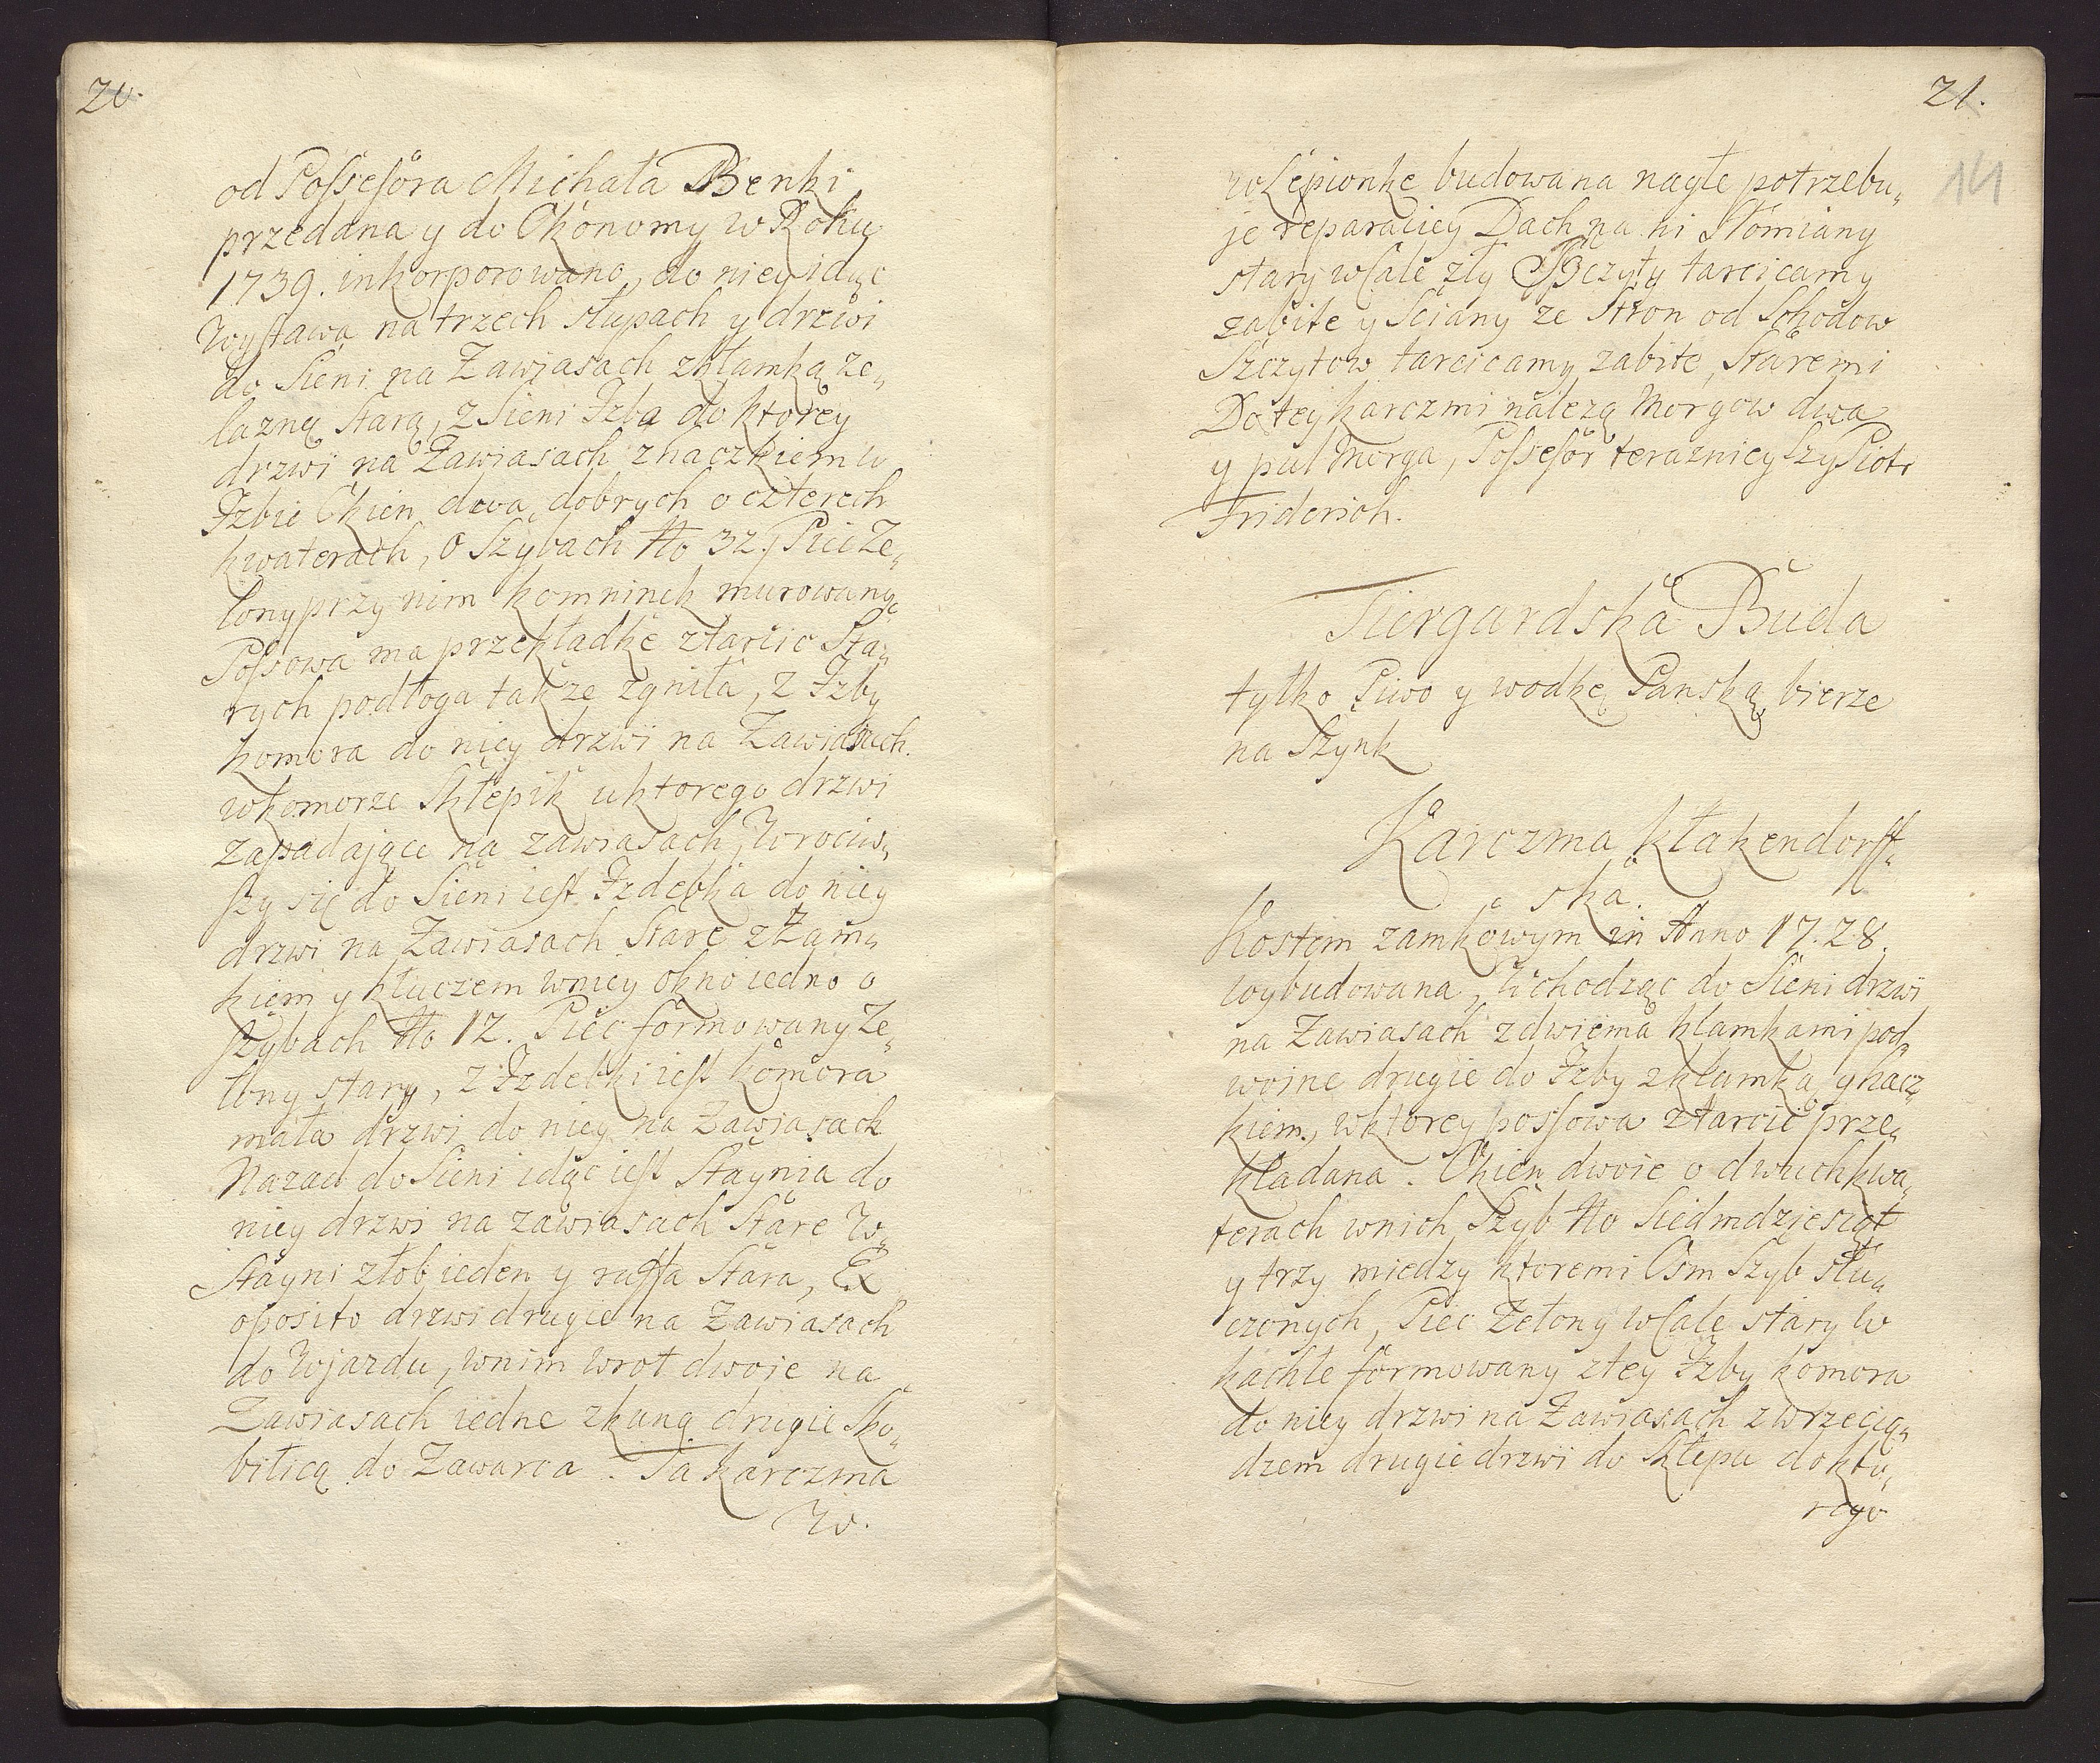 20.
od Possessora Michała Benki
przedana y do Okonomy w Roku
1739. inkorporowano, do niey idąc
Wystawa na trzech słupach y drzwi
do Sieni na Zawiasach zkłamką że„
lazną starą, z Sieni Izba do ktorey
drzwi na Zawiasach zhaczkiem w
Izbie Okien dwa dobrych o czterech
kwaterach, o Szybach No 32. Piec Ze„
lony przy nim kominek murowany
Possowa ma przekładkę ztarcic Sta„
rych podłoga także zgniła, z Izby
komora do niey drzwi na Zawiasach.
wkomorze Skłepik uktorego drzwi
zapadające na zawiasach, Wrociw„
szy się do Sieni iest Izdebka do niey
drzwi na Zawiasach Stare zZam„
kiem y kluczem wniey okno iedno o
szybach No 12. Piec formowany Ze„
lony stary, z Izdebki iest komora
mała drzwi do niey na Zawiasach
Nazad do Sieni idąc iest Staynia do
niey drzwi na zawiasach Stare W„
Stayni złob ieden y raffa Stara, Ex
oposito drzwi drugie na Zawiasach
do Wjazdu, wnim wrot dwoje na
Zawiasach iedne zkuną drugie Sko„
bilicą do Zawarcia. Ta karczma
W.
21.
14
w Lepionkę budowana nagle potrzebu„
je reparaciey Dach na ni Słomiany
stary wcale zły Szczyty tarcicamy
zabite y Sciany ze Stron od Schodow
Szczytow tarcicamy zabite, Staremi
Do tey karczmi należą Morgow dwa
y pul Morga, Possessor teraznieyszy Piotr
Friderich.
Tiergardska Buda
tylko Piwo y wodkę Panską bierze
na Szynk
Karczma kłakendorff„
ska.
Kostem zamkowym in Anno 1728.
wybudowana, Wchodząc do Sieni drzwi
na Zawiasach zdwiema klamkami pod„
woine drugie do Izby zklamką y hacz„
kiem, wktorey possowa ztarcic prze„
kładana. Okien dwoie o dwuch kwa„
terach wnich Szyb No Siedmdziesiąt
y trzy miedzy ktoremi Osm Szyb stłu„
czonych, Piec Zelony wcale stary w
kachle formowany ztey Izby komora
do niey drzwi na Zawiasach zwrzecią„
dzem drugie drzwi do Sklepu do ktu„
rego